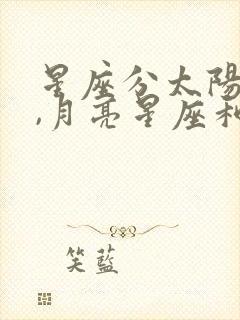 星座分太陽
,月亮星座和
笑藍